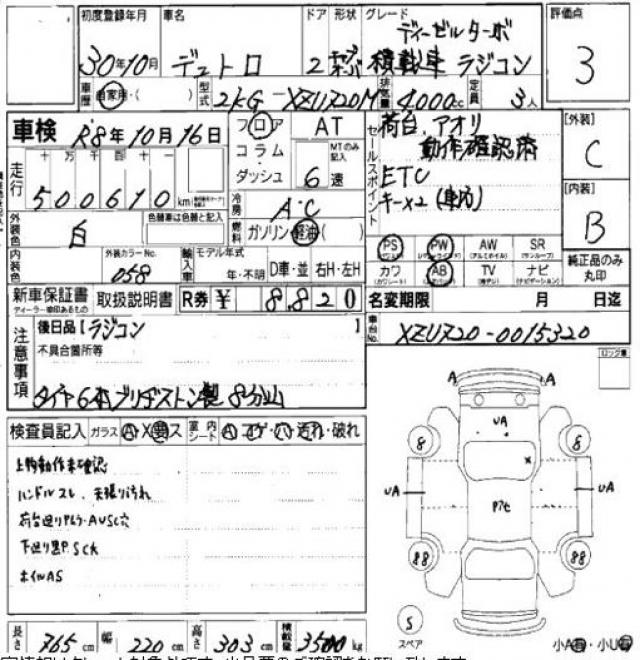 初度登録年月 車名 ドア 形状 グレード 評価点
ディーゼルターボ
30年10月 デュトロ 2 積載車 ラジコン 3
車歴 自家用・( ) 型式 2KG-XZU720M 排気量 4,000cc 定員 3人
車検 R8年10月16日 フロア AT セールスポイント 荷台、アオリ [外装]
コラム MTのみ記入 動作確認済 C
走行 十 万 千 百 十 一 ダッシュ 6速 ETC
500610 km キー×2 [内装]
冷房 A.C B
外装色 白 色替車は色替と記入 燃料 ガソリン 軽油 ( )
PS PW AW SR 純正品のみ丸印
内装色 外装カラーNo. 058 輸入車 モデル年式 年・不明 D車・並 右H・左H
カワ AB TV ナビ
新車保証書 取扱説明書 R券 ¥ 8,820 名変期限 月 日迄
ディーラー車印あるもの
注意事項 後日品【ラジコン 】 車台No. XZU720-0015320
不具合箇所等
タイヤ6本ブリヂストン製 8分山
ロック車
検査員記入 ガラス A・X・ス 室内シート A コゲ・穴 汚れ・破れ
上物動作未確認
ハンドルスレ、天張り汚れ
荷台廻りアルラ・AUSC穴
下廻り黒P、SCK
ホイルAS
A A
UA
8 8
×
UA UA
Pアセ
88 88
S
スペア
小A 小U
長さ 765cm 幅 220cm 高さ 303cm 積載量 3500kg